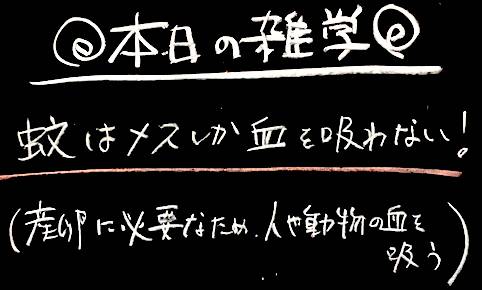 @本日の雑学@
蚊はメスしか血を吸わない!
(産卵に必要なため、人や動物の血を
吸う)